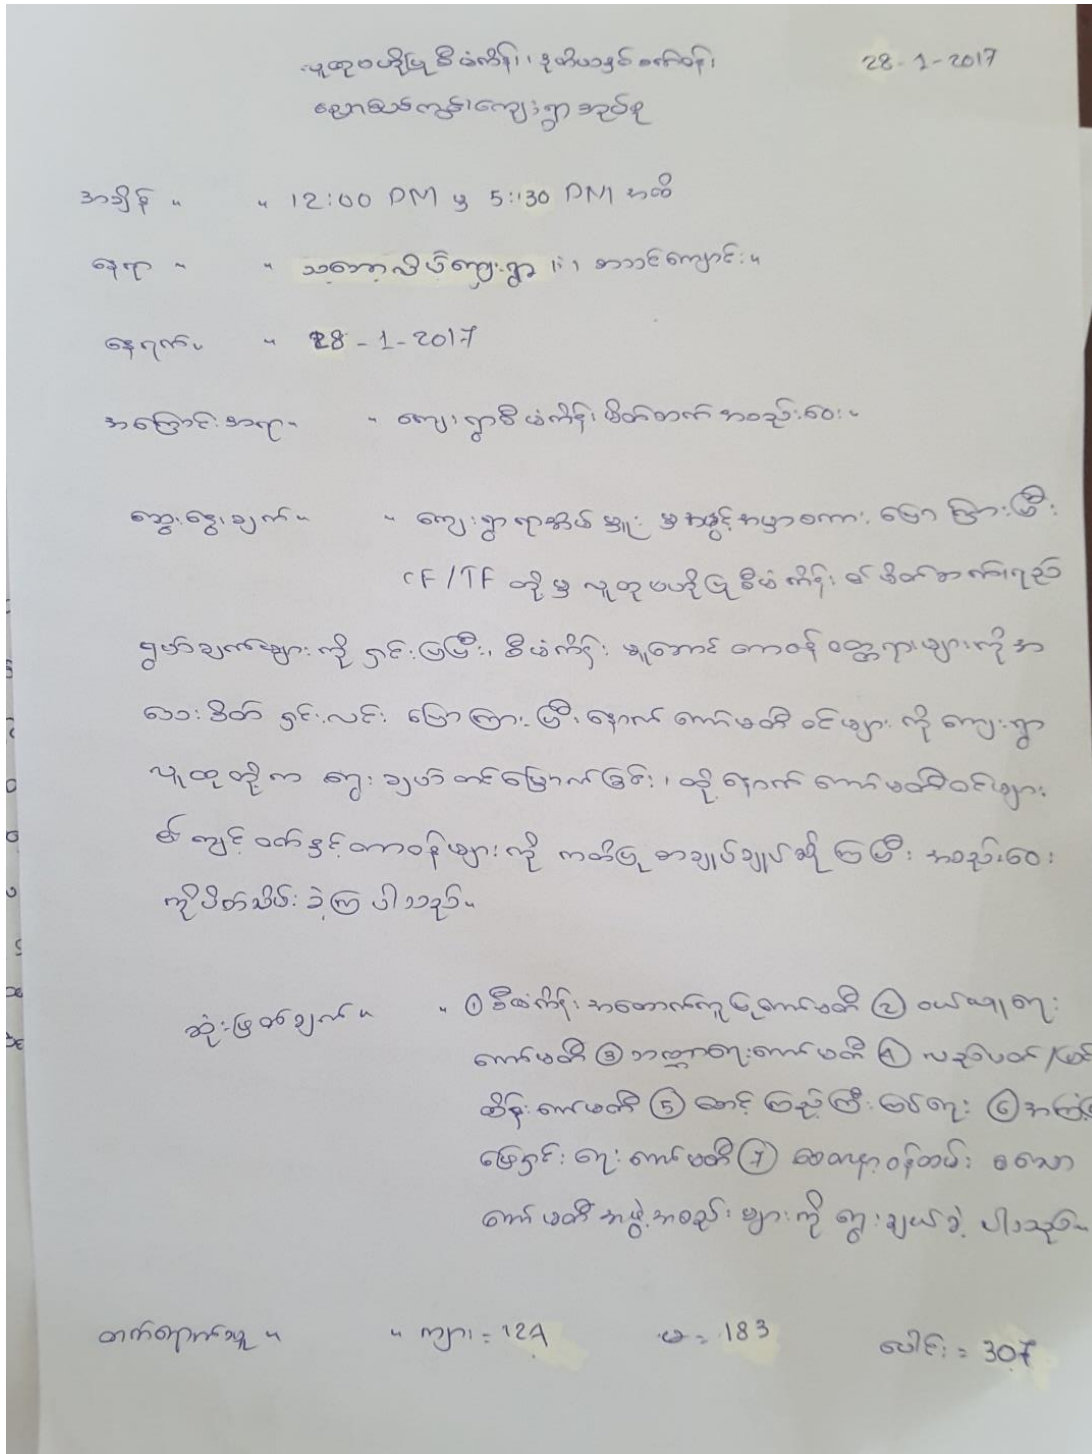 လူထုဗဟိုပြုစီမံကိန်း၊ ဒုတိယနှစ်စက်ဝန်း၊ 28-1-2017
ညောင်ကျေးရွာအုပ်စု
အချိန်။ ။ 12:00 PM မှ 5:30 PM အထိ
နေရာ ။ ။ သင်္ဘောလိပ်ကျေးရွာ ၊ စာသင်ကျောင်း။
နေ့ရက်။ ။ 28-1-2017
အကြောင်းအရာ။ ။ ကျေးရွာစီမံကိန်းမိတ်ဆက်အစည်းအဝေး။
ဆွေးနွေးချက်။ ။ ကျေးရွာရာအိမ်မှူး မှ အဖွင့်အမှာစကား ပြောကြားပြီး
CF/TF တို့မှ လူထုဗဟိုပြုစီမံကိန်း၏ မိတ်ဆက်ရည်
ရွယ်ချက်များကို ရှင်းပြပြီး၊ စီမံကိန်း မူဘောင် တာဝန် ဝတ္တရားများကို အ
သေးစိတ် ရှင်းလင်း ပြောကြားပြီးနောက် ကော်မတီဝင်များကို ကျေးရွာ
လူထုတို့က ရွေးချယ်တင်မြှောက်ခြင်း၊ ထို့နောက် ကော်မတီဝင်များ
၏ ကျင့်ဝတ်နှင့်တာဝန်များကို ကတိပြု စာချုပ်ချုပ်ဆိုကြပြီး အစည်းအဝေး
ကိုပိတ်သိမ်းခဲ့ကြပါသည်။
ဆုံးဖြတ်ချက်။ ။ ① စီမံကိန်းအထောက်အကူပြုကော်မတီ ② ဝယ်ယူရေး
ကော်မတီ ③ ဘဏ္ဍာရေးကော်မတီ ④ လည်ပတ်/ပြင်
ထိန်းကော်မတီ ⑤ စောင့်ကြည့်ကြီးကြပ်ရေး ⑥ အကြံပြု
ဖြေရှင်းရေးကော်မတီ ⑦ စေတနာ့ဝန်ထမ်း စသော
ကော်မတီအဖွဲ့အစည်းများကို ရွေးချယ်ခဲ့ပါသည်။
တက်ရောက်သူ။ ။ ကျား = 124 မ = 183 ပေါင်း = 307